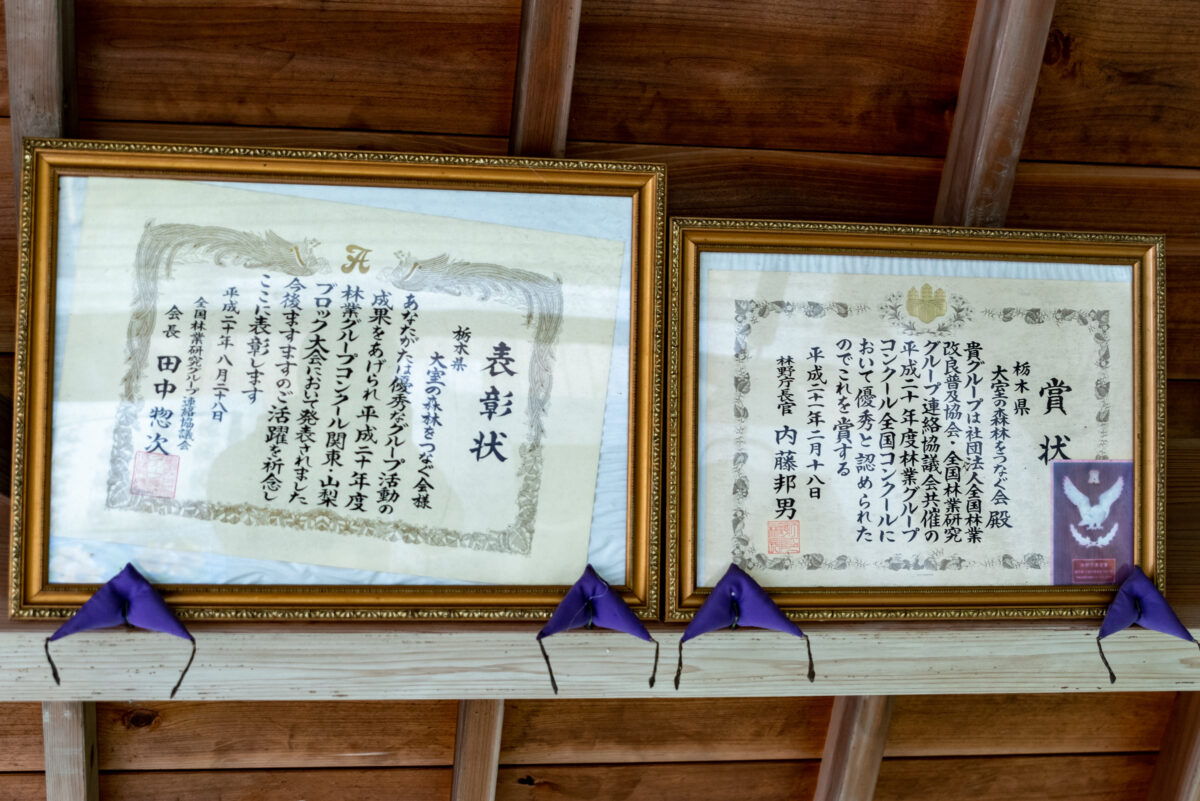 表彰状
栃木県
大室の森林をつなぐ会様
あなたがたは優秀なグループ活動の
成果をあげられ平成二十年度
林業グループコンクール関東・山梨
ブロック大会において発表されました
今後ますますのご活躍を祈念し
ここに表彰します
平成二十年八月二十八日
全国林業研究グループ連絡協議会
会長 田中惣次
賞状
栃木県
大室の森林をつなぐ会 殿
貴グループは社団法人全国林業
改良普及協会・全国林業研究
グループ連絡協議会共催の
平成二十年度林業グループ
コンクール全国コンクールに
おいて優秀と認められた
のでこれを賞する
平成二十一年二月十八日
林野庁長官 内藤邦男